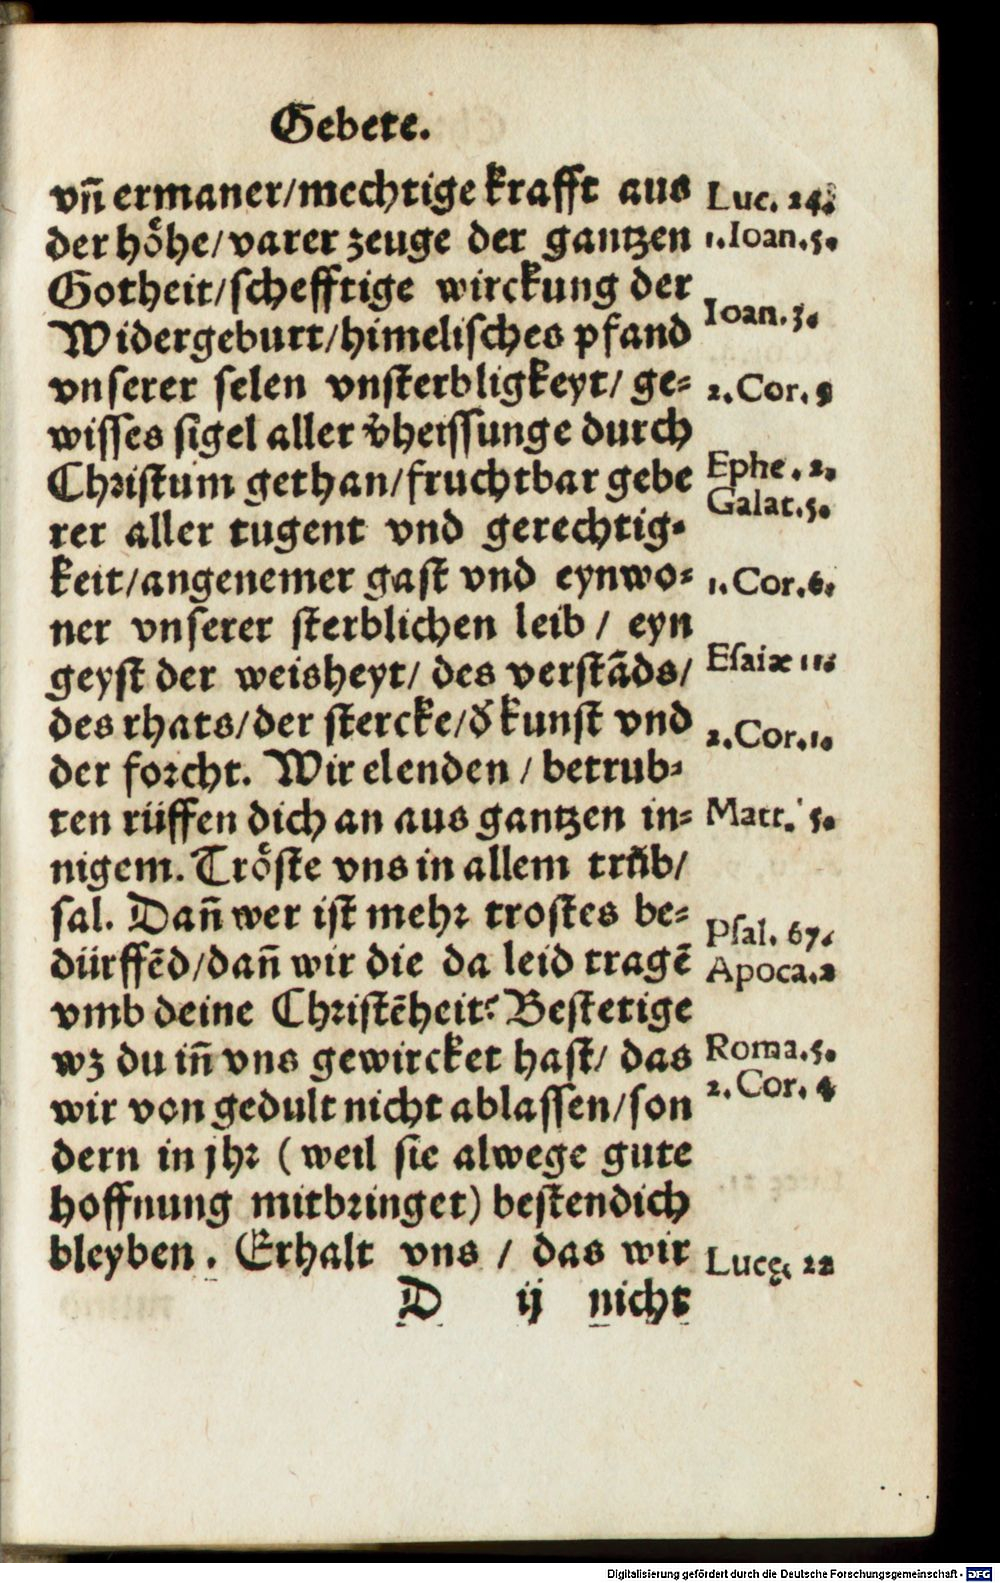 Gebete.
vñ ermaner/mechtige krafft aus
der hoͤhe/varer zeuge der gantzen
Gotheit/schefftige wirckung der
Widergeburt/himelisches pfand
vnserer selen vnsterbligkeyt/ ge⸗
wisses sigel aller v̄heissunge durch
Christum gethan/fruchtbar gebe
rer aller tugent vnd gerechtig⸗
keit/angenemer gast vnd eynwo⸗
ner vnserer sterblichen leib / eyn
geyst der weisheyt/ des verstāds/
des rhats/der stercke/d̄ kunst vnd
der forcht. Wir elenden / betrub⸗
ten rüffen dich an aus gantzen in⸗
nigem. Troͤste vns in allem truͤb/
sal. Dañ wer ist mehr trostes be⸗
dürffēd/dañ wir die da leid tragē
vmb deine Christēheit? Bestetige
wz du iñ vns gewircket hast/ das
wir von gedult nicht ablassen/son
dern in jhr (weil sie alwege gute
hoffnung mitbringet) bestendich
bleyben. Erhalt vns / das wir
D ij nicht
Luc. 24.
1.Ioan.5.
Ioan.3.
2.Cor.5
Ephe.2.
Galat.5.
1.Cor.6.
Esaiæ 11.
2.Cor.1.
Matt. 5.
Psal. 67.
Apoca.2
Roma.5.
2.Cor.4
Lucę 22
Digitalisierung gefördert durch die Deutsche Forschungsgemeinschaft - DFG